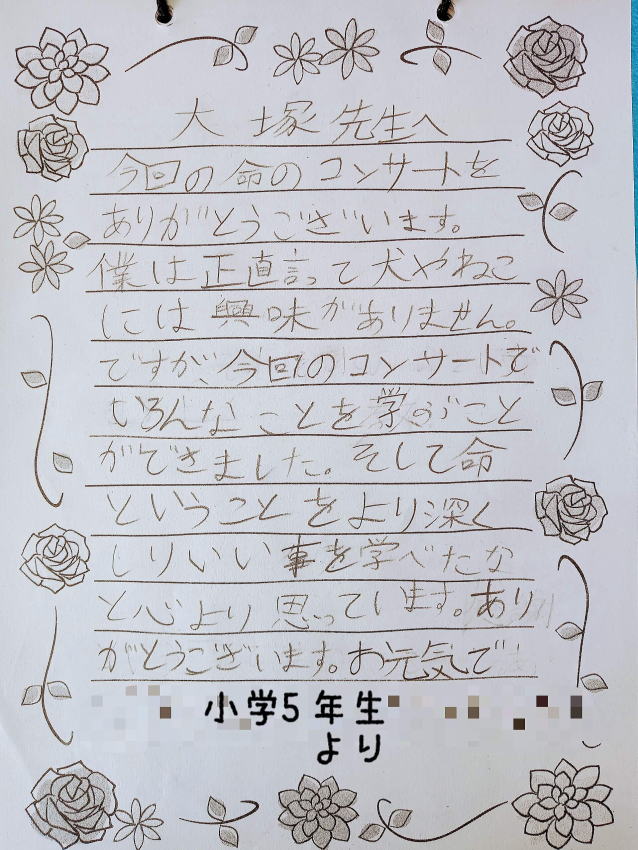 大塚先生へ
今回の命のコンサートを
ありがとうございます。
僕は正直言って犬やねこ
には興味がありません。
ですが、今回のコンサートで
いろんなことを学ぶこと
ができました。そして命
ということをより深く
しりいい事を学べたな
と心より思っています。あり
がとうございます。お元気で
小学5年生
より